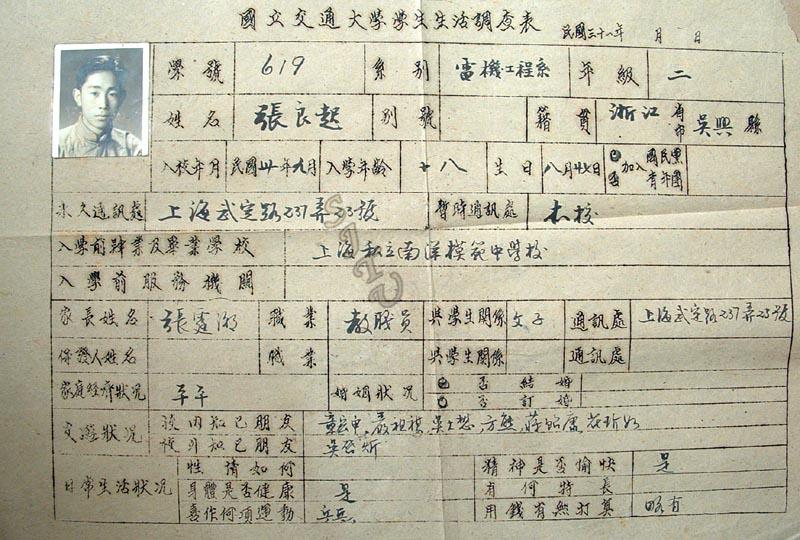 國立交通大學學生生活調查表 民國三十一年 月 日
學號 619 系別 電機工程系 年級 二
姓名 張良起 別號 籍貫 浙江省市 吳興縣
入校年月 民國卅年九月 入學年齡 十八 生日 八月 日 已否加入國民黨青年團
永久通訊處 上海武定路237弄23號 暫時通訊處 本校
入學前肄業及畢業學校 上海私立南洋模範中學校
入學前服務機關
家長姓名 職業 教職員 與學生關係 父子 通訊處 上海武定路237弄23號
保證人姓名 職業 與學生關係 通訊處
家庭經濟狀況 平平 婚姻狀況 已否結婚
已否訂婚
交遊狀況 校內知已朋友
校外知已朋友
日常生活狀況 性情如何 精神是否愉快 是
身體是否健康 是 有何特長
喜作何項運動 乒乓 用錢有無打算 略有